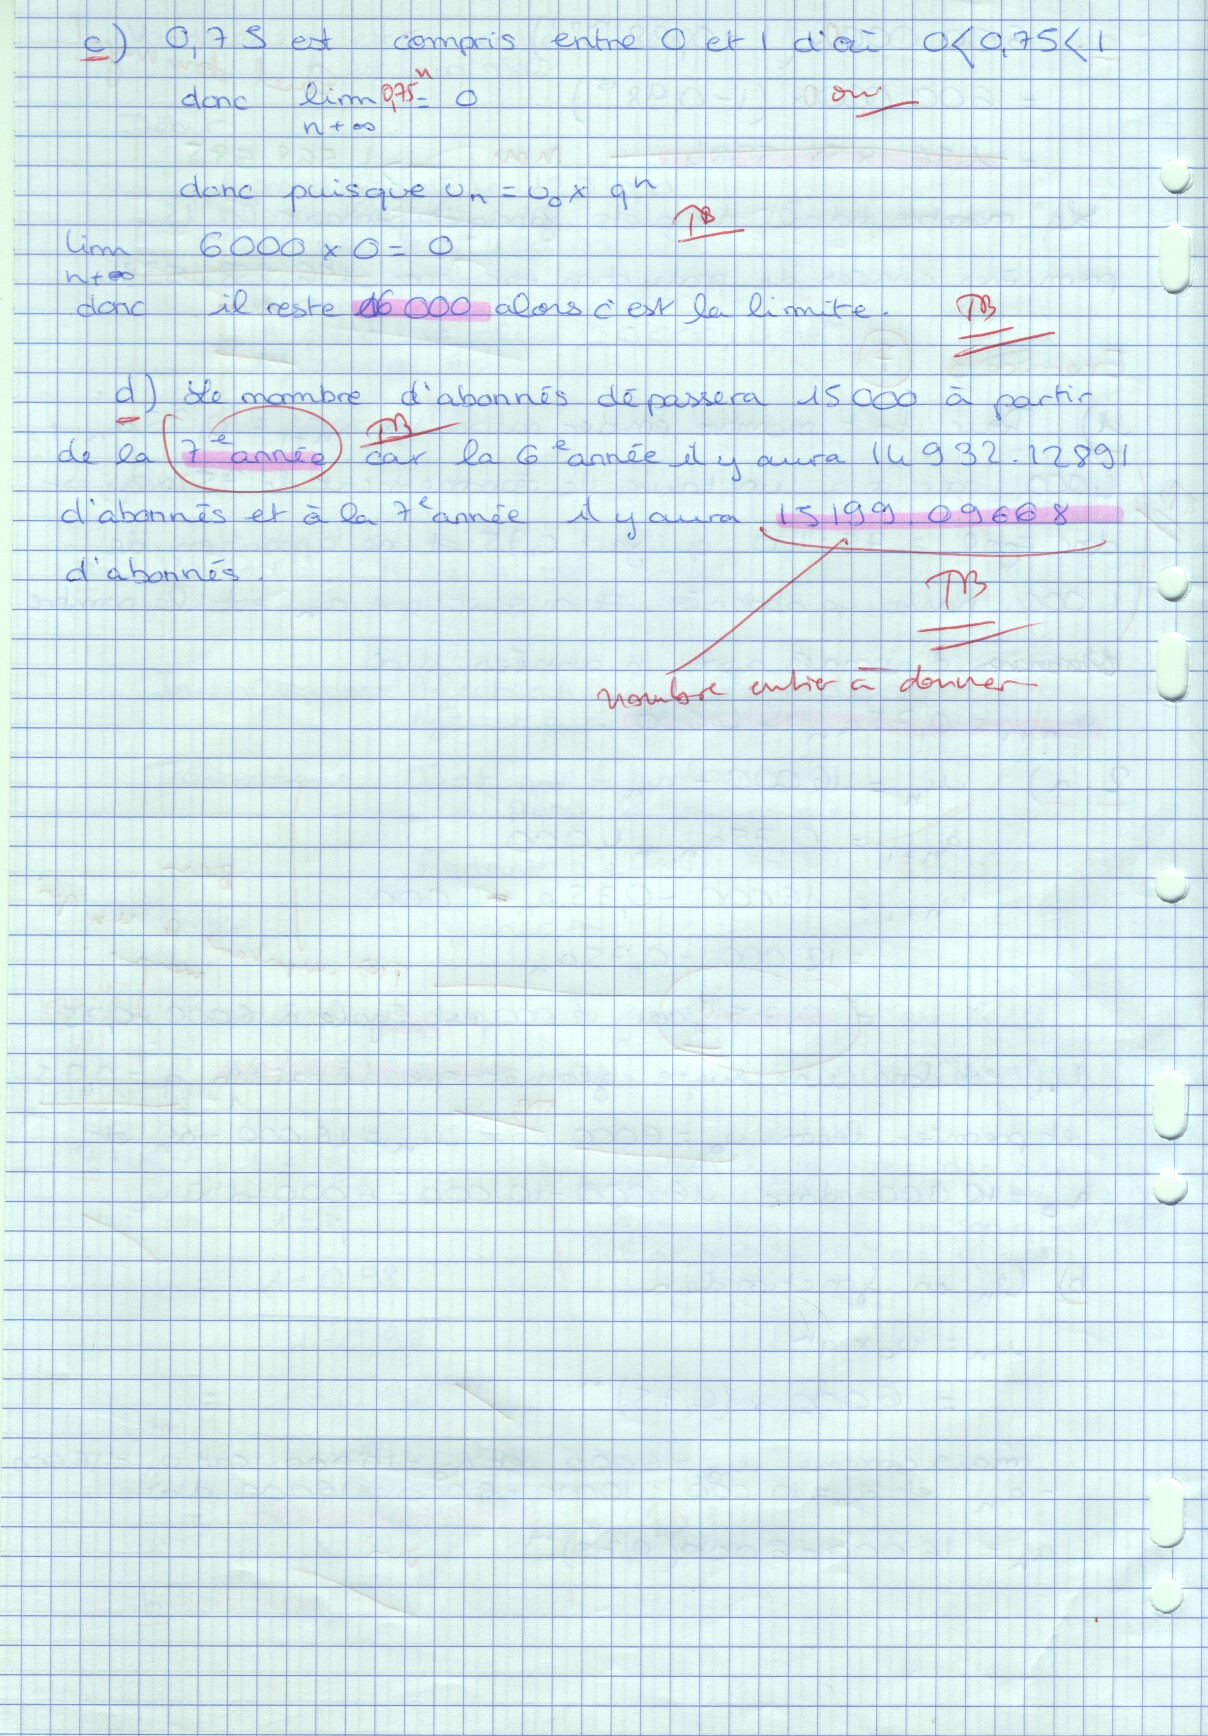 c) 0,75 est compris entre 0 et 1 d'où 0<0,75<1
donc lim 0,75^n = 0 oui
n+∞
donc puisque un = u0 x q^n
TB
lim 6000 x 0 = 0
n+∞
donc il reste 16000 alors c'est la limite. TB
d) Le nombre d'abonnés dépassera 15000 à partir
de la 7e année TB car la 6e année il y aura 14932.12891
d'abonnés et à la 7e année il y aura 15199.09668
d'abonnés.
TB
nombre entier à donner